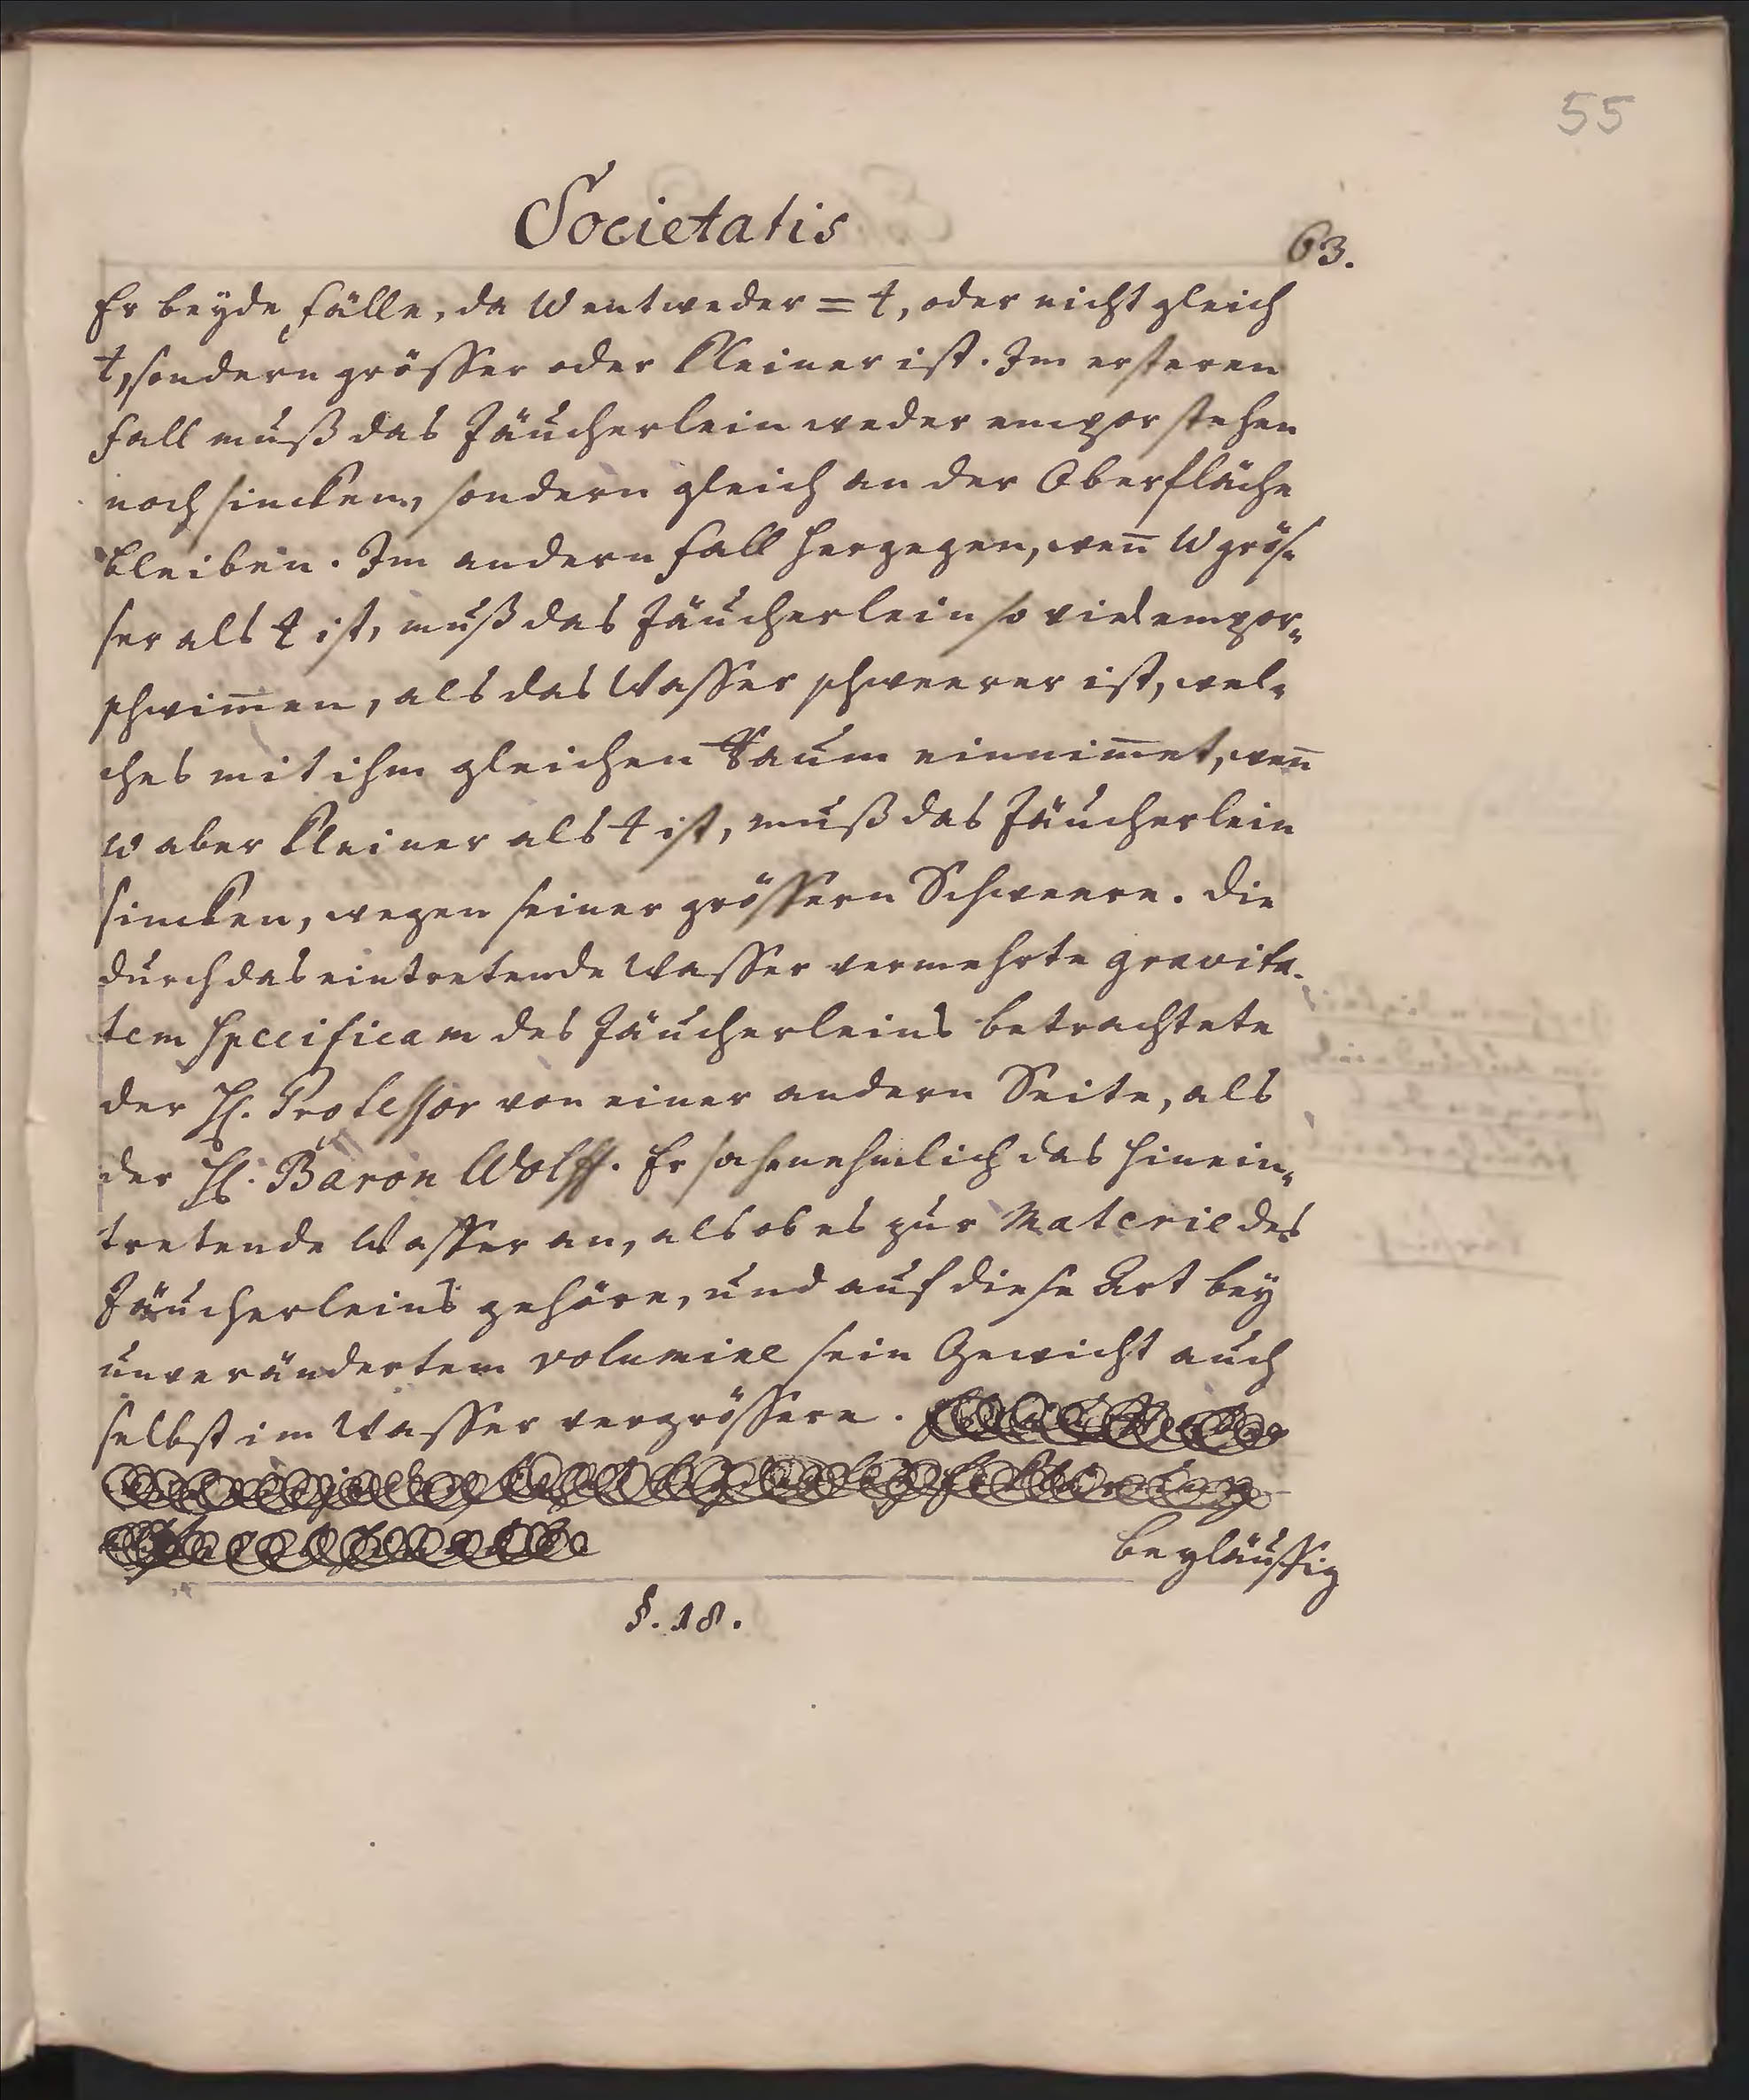 55
Societatis
63.
Er beyde Fälle, da W entweder = t, oder nicht gleich
t, sondern grösser oder kleiner ist. Im ersteren
Fall muß das Täucherlein weder empor stehen
noch sincken, sondern gleich an der Oberfläche
bleiben. Im andern Fall hergegen, wen̅ W grös-
ser als t ist, muß das Täucherlein so viel empor-
schwim̅en, als das Wasser schweerer ist, wel-
ches mit ihm gleichen Raum einnim̅et, wen̅
w aber kleiner als t ist, muß das Täucherlein
sincken, wegen seiner grössern Schweere. Die
durch das eintretende Wasser vermehrte gravita-
tem specificam des Täucherleins betrachtete
der H. Professor von einer andern Seite, als
der H. Baron Wolff. Er sahe nehmlich das hinein-
tretende Wasser an, als ob es zur Materie des
Täucherleins gehöre, und auf diese Art bey
unverändertem volumine sein Gewicht auch
selbst im Wasser vergrössere.
Beyläuffig
§. 18.